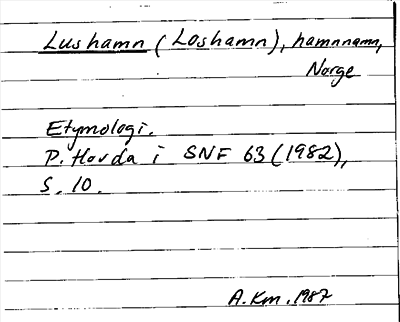 Lushamn (Loshamn), hamnnamn,
Norge
Etymologi.
P. Hovda i SNF 63 (1982),
S. 10.
A. Km. 1987